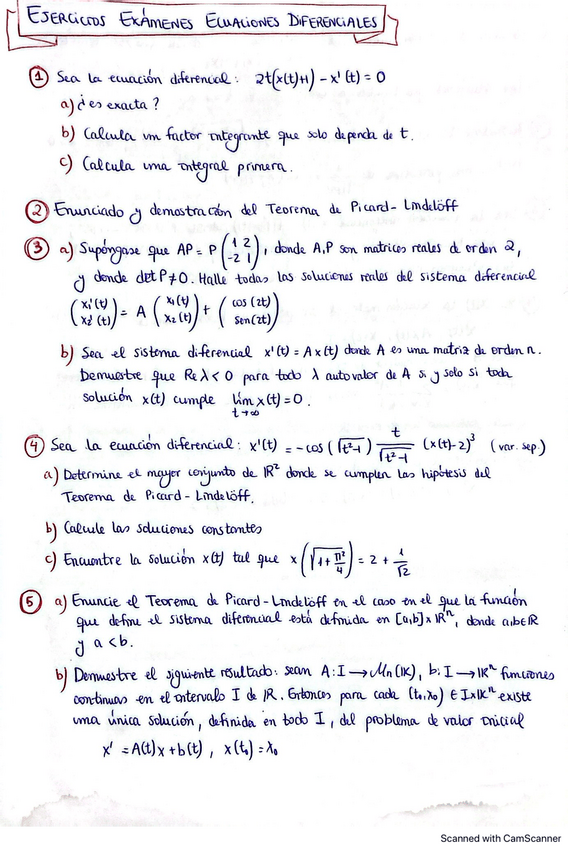 EJERCICIOS EXÁMENES ECUACIONES DIFERENCIALES
① Sea la ecuación diferencial: 2t(x(t)+1) - x'(t) = 0
a) ¿es exacta?
b) Calcula un factor integrante que solo dependa de t.
c) Calcula una integral primera.
② Enunciado y demostración del Teorema de Picard-Lindelöff
③ a) Supóngase que AP = P (1 2 / -2 1), donde A,P son matrices reales de orden 2,
y donde det P ≠ 0. Halle todas las soluciones reales del sistema diferencial
(x1'(t) / x2'(t)) = A (x1(t) / x2(t)) + (cos(2t) / sen(2t))
b) Sea el sistema diferencial x'(t) = Ax(t) donde A es una matriz de orden n.
Demuestre que Re λ < 0 para todo λ autovalor de A si y solo si toda
solución x(t) cumple lim x(t) = 0.
t→∞
④ Sea la ecuación diferencial: x'(t) = -cos(√(t²-1)) t/√(t²-1) (x(t)-2)³ (var. sep.)
a) Determine el mayor conjunto de IR² donde se cumplen las hipótesis del
Teorema de Picard-Lindelöff.
b) Calcule las soluciones constantes
c) Encuentre la solución x(t) tal que x(√(1+π²/4)) = 2 + 1/√2
⑤ a) Enuncie el Teorema de Picard-Lindelöff en el caso en el que la función
que define el sistema diferencial está definida en [a,b] x IRⁿ, donde a,b∈IR
y a < b.
b) Demuestre el siguiente resultado: sean A: I → Mn(IK), b: I → IKⁿ funciones
continuas en el intervalo I de IR. Entonces para cada (t₀,x₀) ∈ I x IKⁿ existe
una única solución, definida en todo I, del problema de valor inicial
x' = A(t)x + b(t), x(t₀) = x₀
Scanned with CamScanner